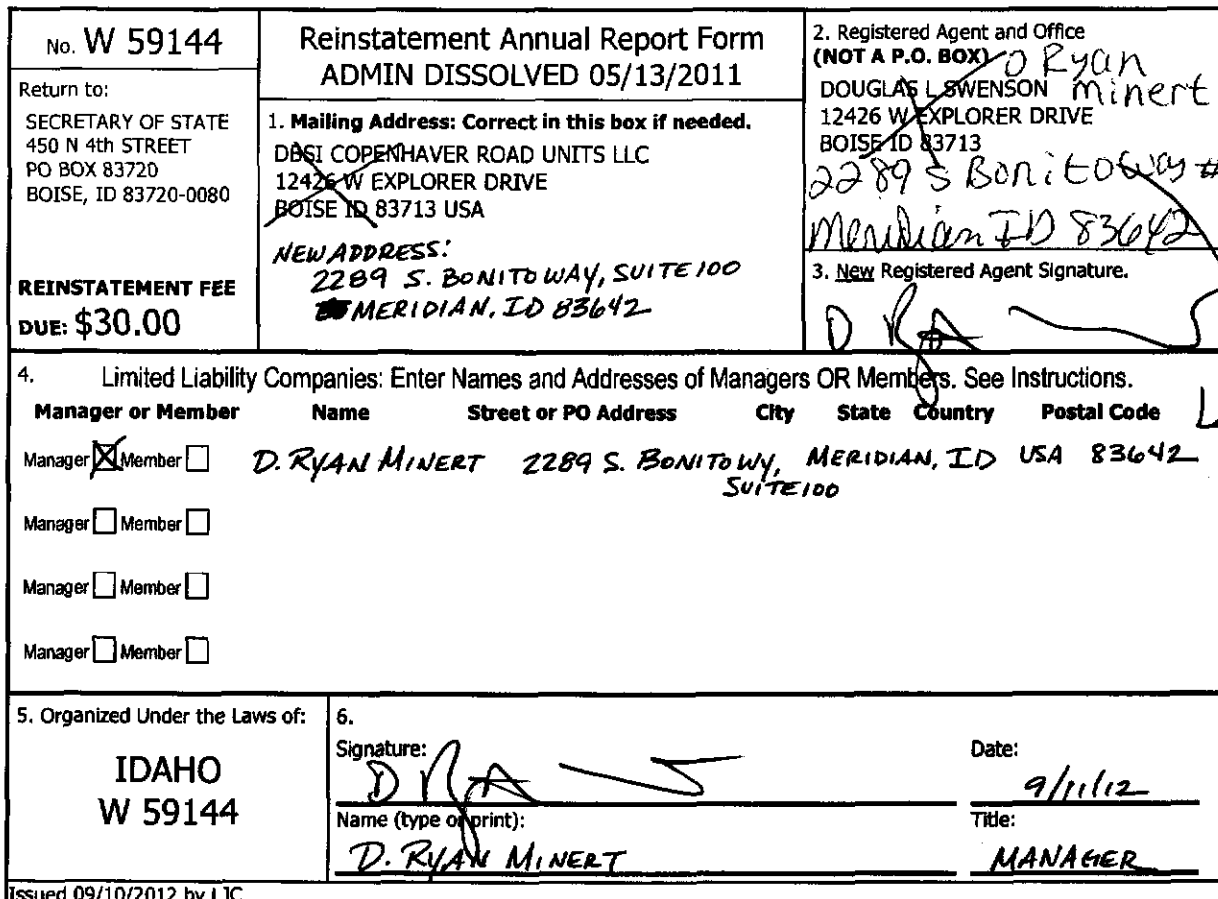 No. W 59144
Return to:
SECRETARY OF STATE
450 N 4th STREET
PO BOX 83720
BOISE, ID 83720-0080
REINSTATEMENT FEE
DUE: $30.00
Reinstatement Annual Report Form
ADMIN DISSOLVED 05/13/2011
1. Mailing Address: Correct in this box if needed.
DBSI COPENHAVER ROAD UNITS LLC
12426 W EXPLORER DRIVE
BOISE ID 83713 USA
NEW ADDRESS:
2289 S. BONITO WAY, SUITE 100
MERIDIAN, ID 83642
2. Registered Agent and Office
(NOT A P.O. BOX) D Ryan
DOUGLAS L SWENSON Minert
12426 W EXPLORER DRIVE
BOISE ID 83713
2289 S Bonito Way #
Meridian ID 83642
3. New Registered Agent Signature.
4. Limited Liability Companies: Enter Names and Addresses of Managers OR Members. See Instructions.
Manager or Member Name Street or PO Address City State Country Postal Code
Manager Member D. RYAN MINERT 2289 S. BONITO WY, MERIDIAN, ID USA 83642
SUITE 100
Manager Member
Manager Member
Manager Member
5. Organized Under the Laws of:
IDAHO
W 59144
6.
Signature:
Date:
9/11/12
Name (type or print):
D. RYAN MINERT
Title:
MANAGER
Issued 09/10/2012 by LJC